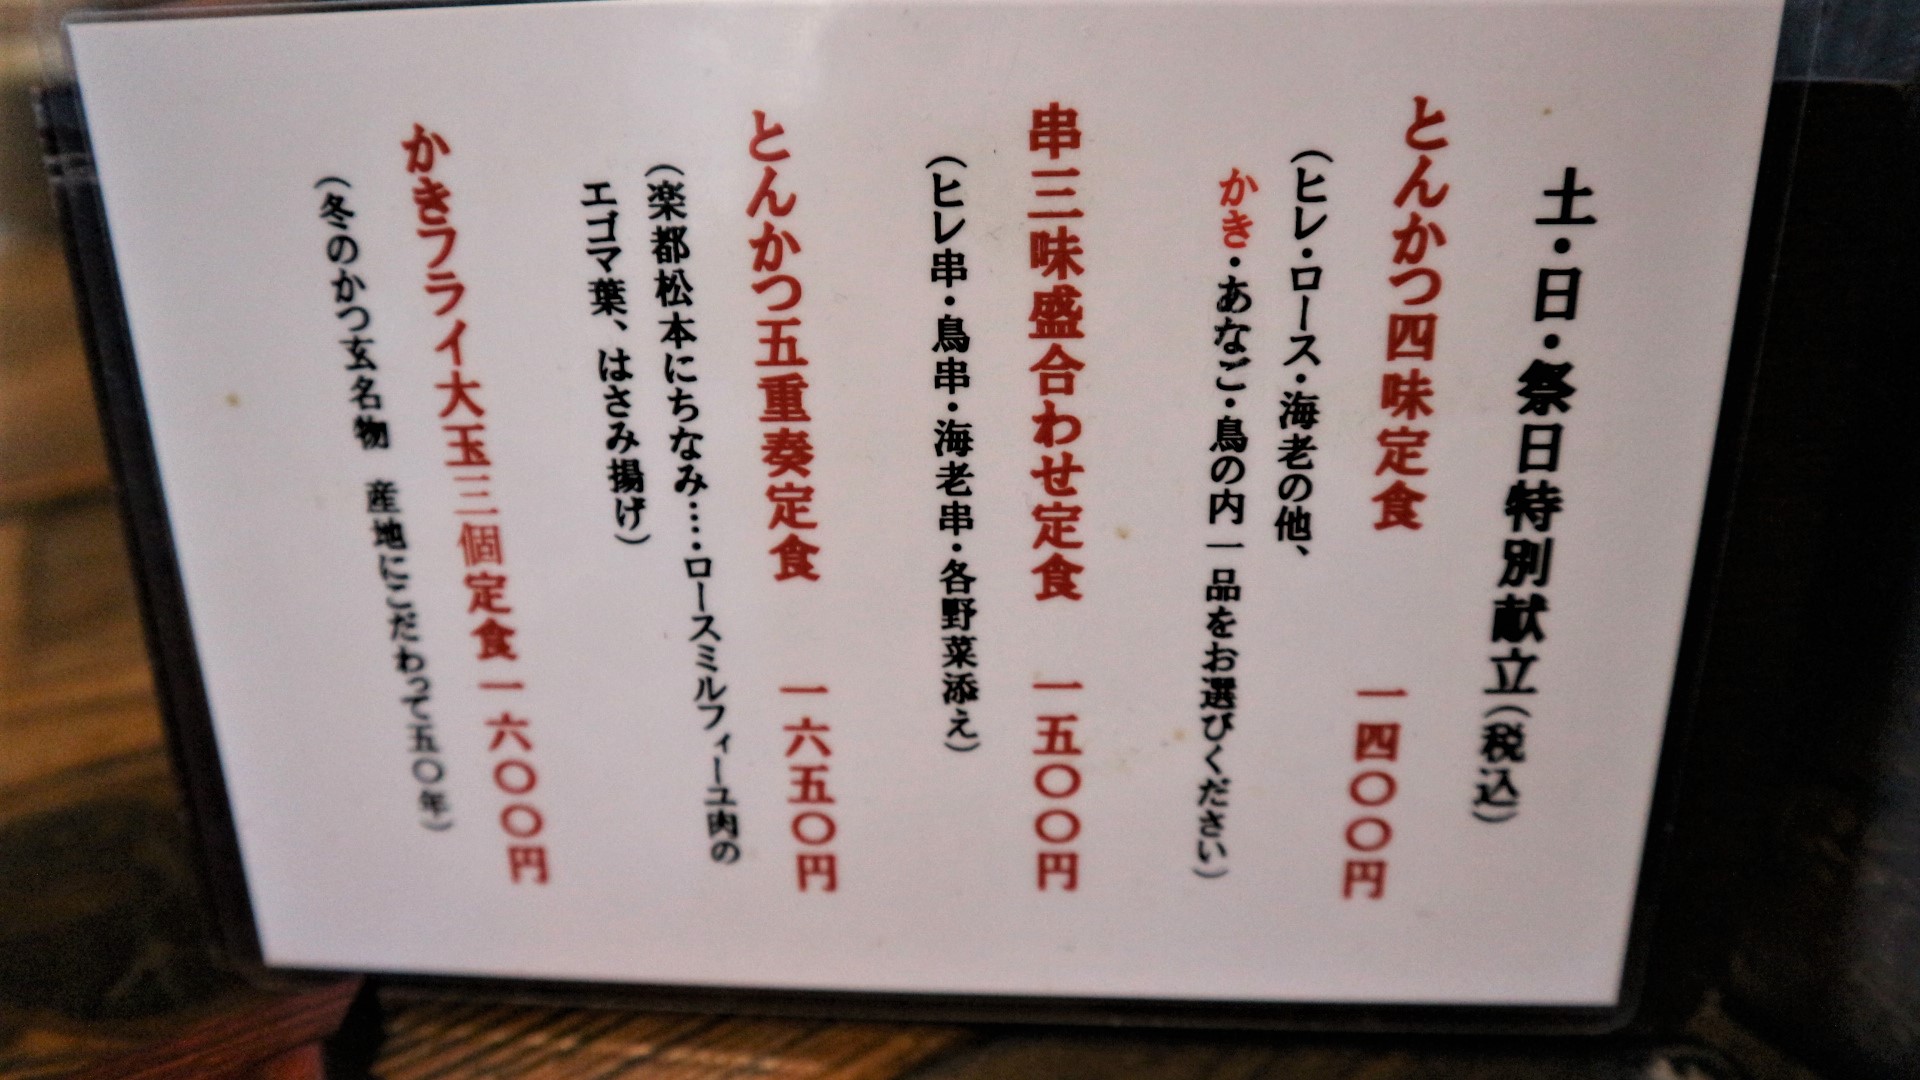 土・日・祭日特別献立（税込）
とんかつ四味定食　一四〇〇円
（ヒレ・ロース・海老の他、
かき・あなご・鳥の内一品をお選びください）
串三味盛合わせ定食　一五〇〇円
（ヒレ串・鳥串・海老串・各野菜添え）
とんかつ五重奏定食　一六五〇円
（楽都松本にちなみ…・ロースミルフィーユ肉の
エゴマ葉、はさみ揚げ）
かきフライ大玉三個定食　一六〇〇円
（冬のかつ玄名物　産地にこだわって五〇年）